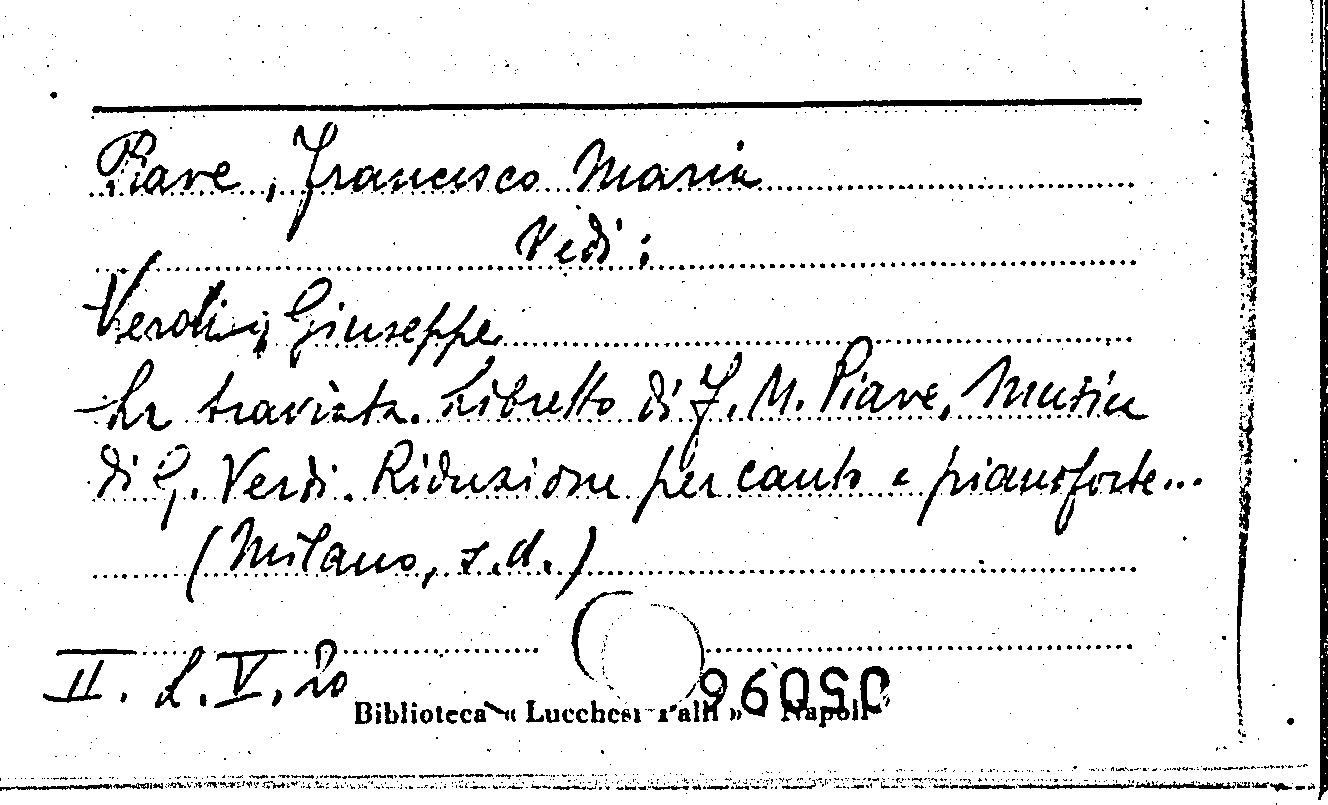 Piave, Francesco Maria
Vedi:
Verdi, Giuseppe
La traviata. Libretto di F. M. Piave, Musica
di G. Verdi. Riduzione per canto e pianoforte...
(Milano, s.d.)
II. L. V, 20
Biblioteca « Lucchesi Palli » - Napoli